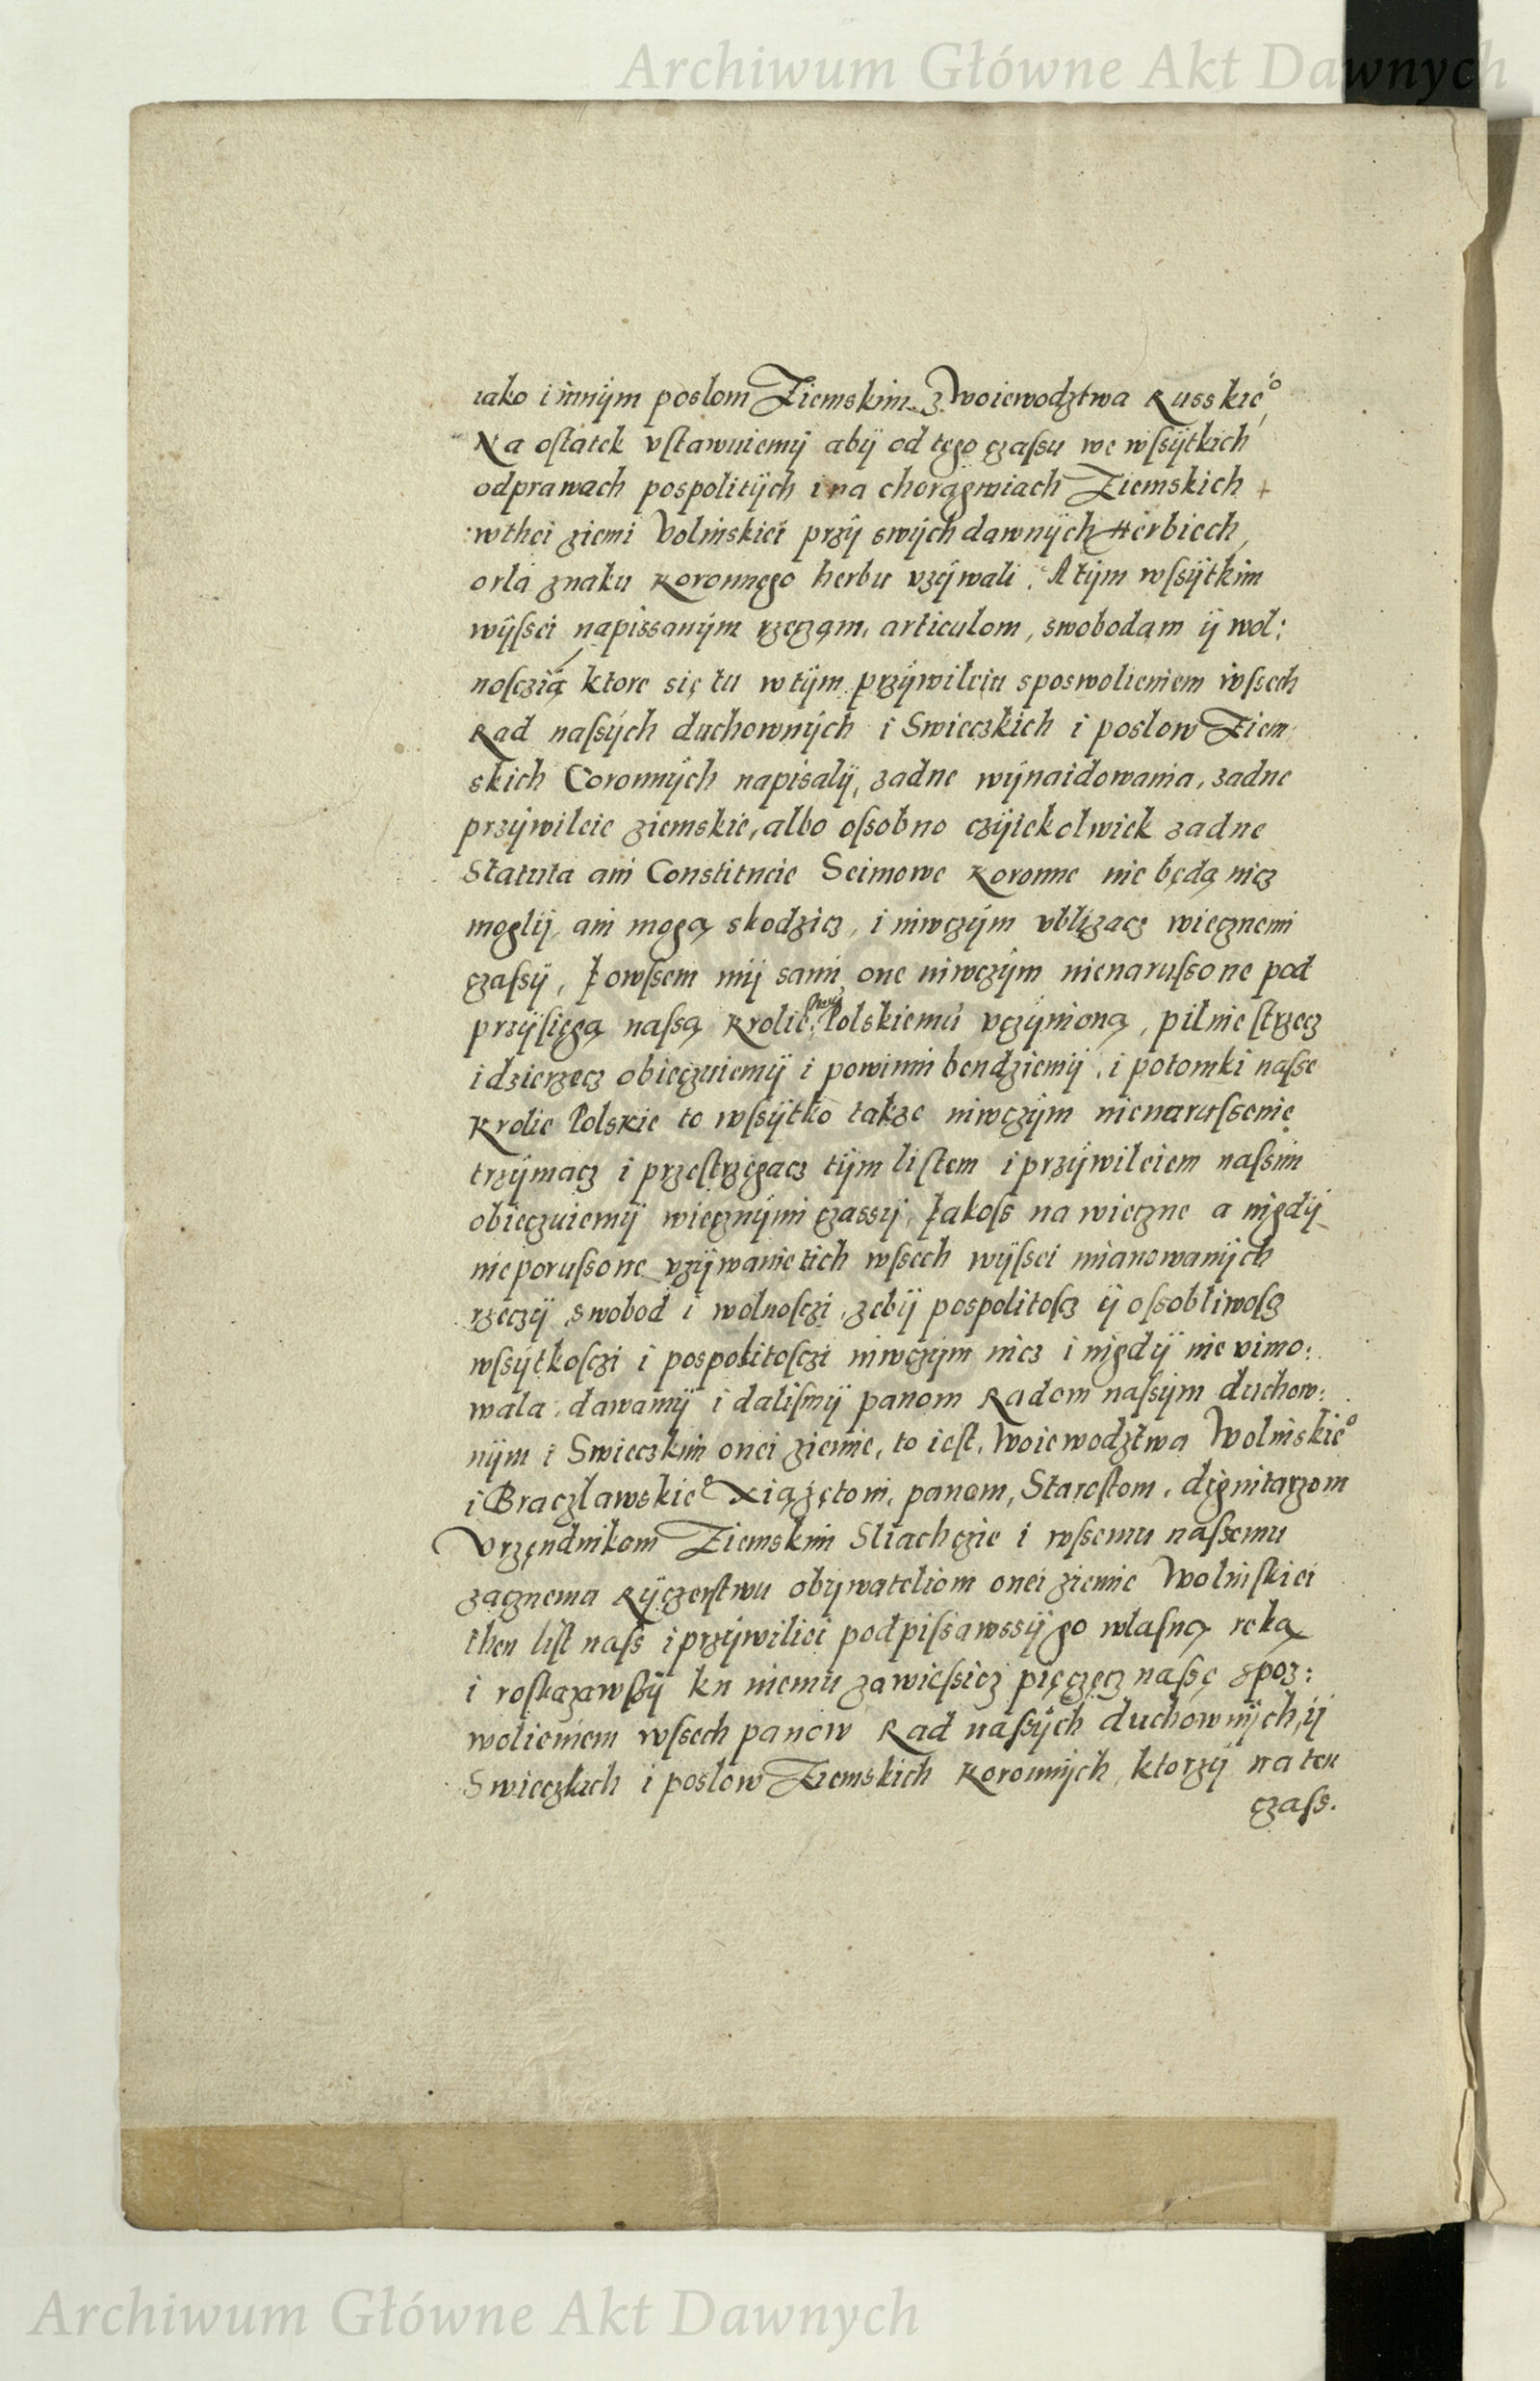 Archiwum Główne Akt Dawnych
iako i innÿm posłom Ziemskim z Woiewodztwa Russkie°
Na ostatek vstawuiemÿ abÿ od tego czaſsu we wſsÿtkich
odprawach pospolitÿch i na chorągwiach Ziemskich
wthei ziemi Volińskiei przÿ swÿch dawnÿch Herbiech,
orła znaku Koronnego herbu vzÿwali. A tÿm wſsÿtkim
wÿſsei napissanÿm rzeczam, articulom, swobodam ÿ wol:
noſczią ktore się tu w tÿm przÿwileiu sposwolieniem wſsech
Rad naſsÿch duchownÿch i Swieczkich i posłow Ziem
skich Coronnÿch napisalÿ, zadne wÿnaidowania, zadne
przÿwileie ziemskie, albo oſsobno czÿiekolwiek zadne
Statuta ani Constitucie Seimowe Koronne nie będą nicz
moglÿ, ani mogą skodzicz, i niwczÿm vblizacz wiecznemi
czaſsÿ, I owſsem mÿ sami one niwczÿm nienaruſsone pod
przÿſięgą naſsą Krolie: Polskiemu vczÿnioną, pilnie strzecz
i dzierzecz obieczuiemÿ i powinni bendziemÿ, i potomki naſse
Krolie Polskie to wſsÿtko takze niwczÿm nienaruſsenie
trzÿmacz i przeſtrzegacz tÿm liſtem i przÿwileiem naſsim
obieczuiemÿ wiecznÿmi czassÿ, Iakoſs na wieczne a nigdÿ
nieporuſsone vzÿwanie tich wſsech wÿſsei mianowanÿch
rzeczÿ swobod i wolnoſczi, zebÿ pospolitoſcz ÿ oſsobliwoſcz
wſsÿtkoſczi i pospolitoſczi niwczÿm nicz i nigdÿ nie vimo:
wala, dawamÿ i daliſmÿ panom Radom naſsÿm duchow:
nÿm i Swieczkim onei ziemie, to ieſt, Woiewodztwa Wolinskie°
i Braczlawskie° Xiążętom, panom, Staroſtom, dignitarzom
Vrzęndnikom Ziemskim Sliachczie i wſsemu naſsemu
zacznemu Rÿczerſtwu obÿwateliom onei ziemie Woliniſkiei
then liſt naſs i przÿwiliei podpiſsawssÿ go wlaſną reką
i roſkazawſzÿ ku niemu zawieſsicz pięczęcz naſsę spoz:
wolieniem wſsech panow Rad naſsÿch duchownÿch, ÿ
Swieczkich i posłow Ziemskich Koronnÿch, ktorzÿ na ten
czaſs.
Archiwum Główne Akt Dawnych